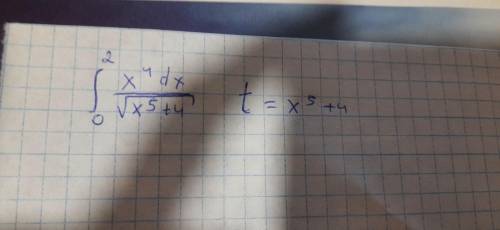 ∫₀² x⁴ dx / √(x⁵+4)   t = x⁵+4